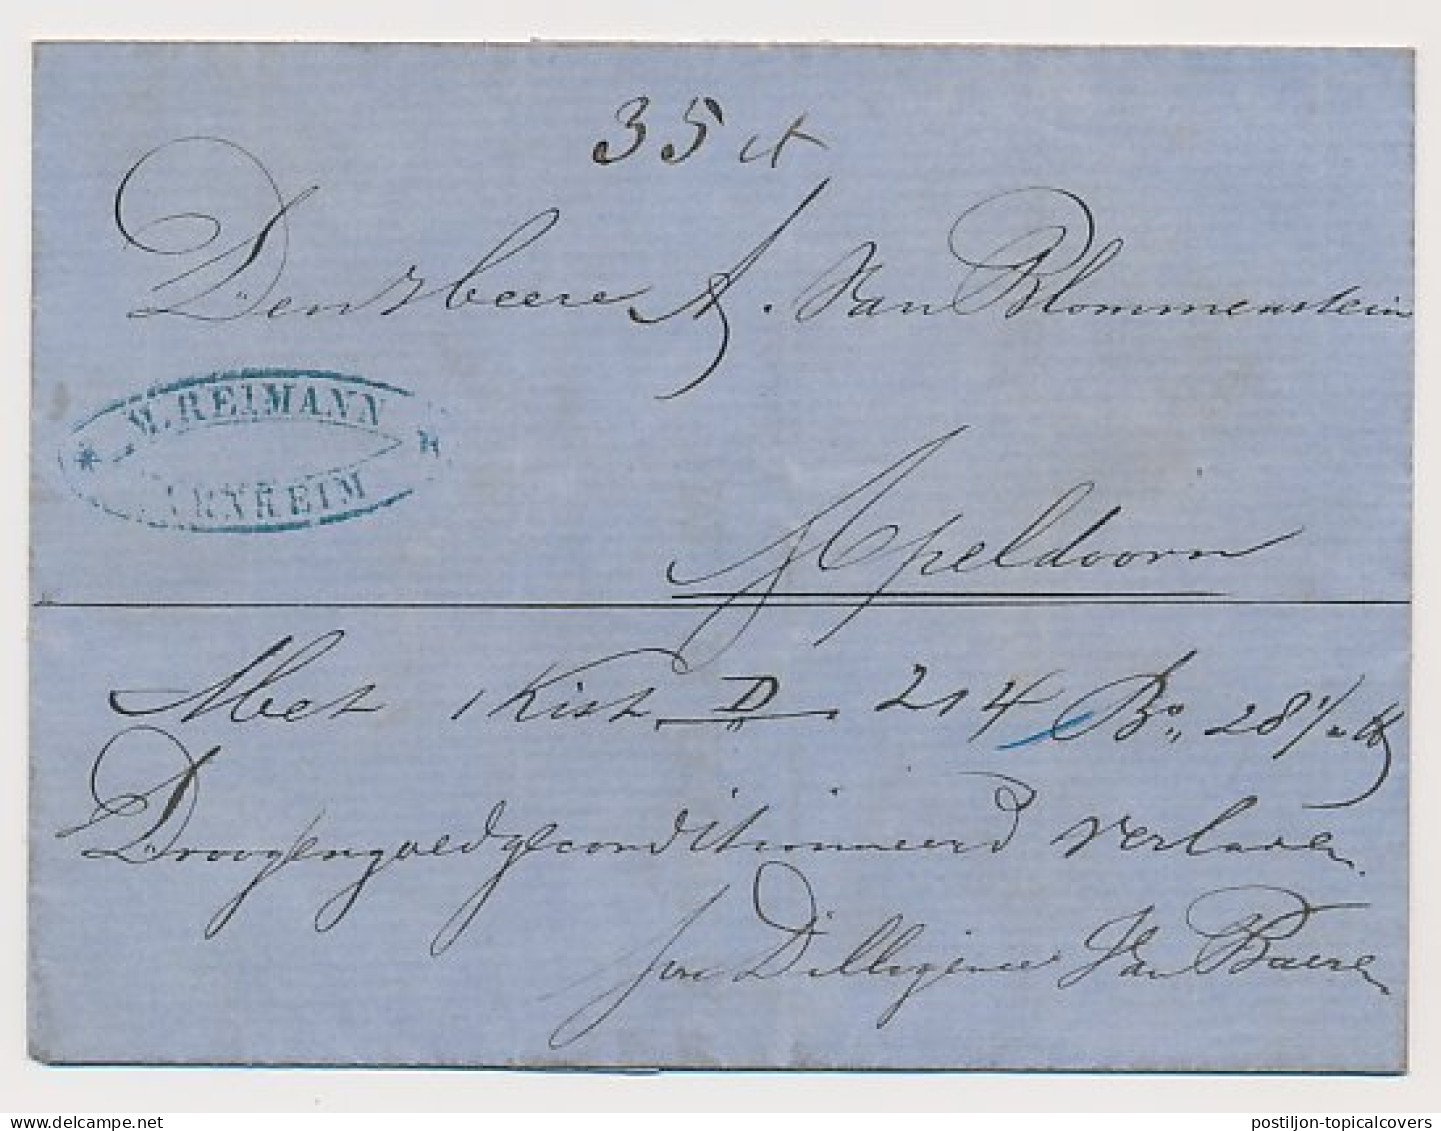 35 ct
Den Heere A. Van Blommenstein
M. REIMANN
ARNHEIM
Apeldoorn
Met 1 Kist D 214 Bo 28 1/2 lb
Droog en goed geconditioneerd verladen
per Dilligence Van Baeren
postiljon-topicalcovers / delcampe.com